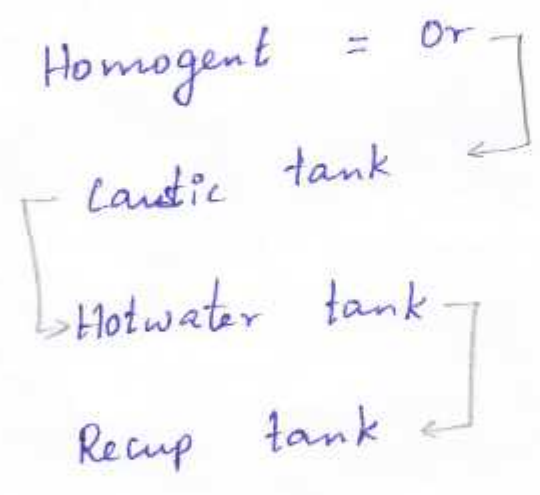 Homogent = Or
Caustic tank
Hotwater tank
Recup tank